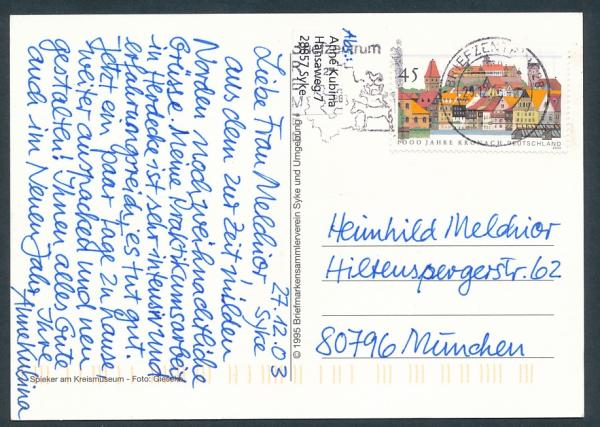 27.12.03
Syke
Liebe Frau Melchior,
aus dem zur Zeit milden
Norden noch weihnachtliche
Grüsse. Meine Praktikumsarbeit
in Herdecke ist sehr intensiv und
erfahrungsreich, es tut gut.
Jetzt ein paar Tage zu Hause
weiter auspacken und neu
gestalten! Ihnen alles Gute
auch im Neuen Jahr, Ihre
Anne Kubina
Abs.:
Anne Kubina
Hansaweg 7
28857 Syke
BRIEFZENTRUM
45
1000 JAHRE KRONACH
DEUTSCHLAND
Heimhild Melchior
Hiltenspergerstr. 62
80796 München
© 1995 Briefmarkensammlerverein Syke und Umgebung
Spieker am Kreismuseum - Foto: Gieseke